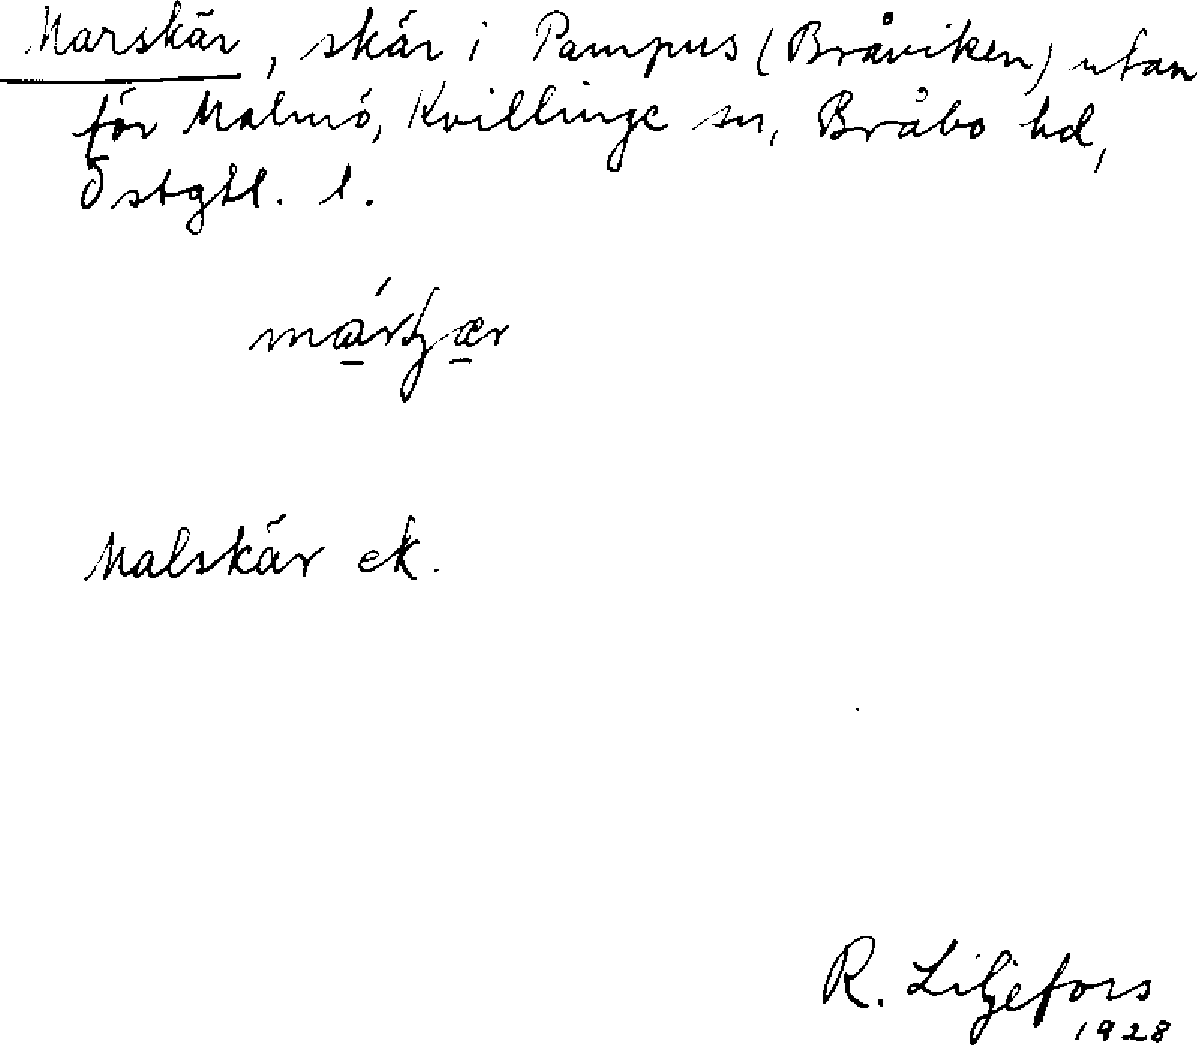 Marskär, skär i Pampus (Bråviken) utan
för Malmö, Kvillinge sn, Bråbo hd,
Östgtl. l.
Malskär ek.
R. Liljefors
1928